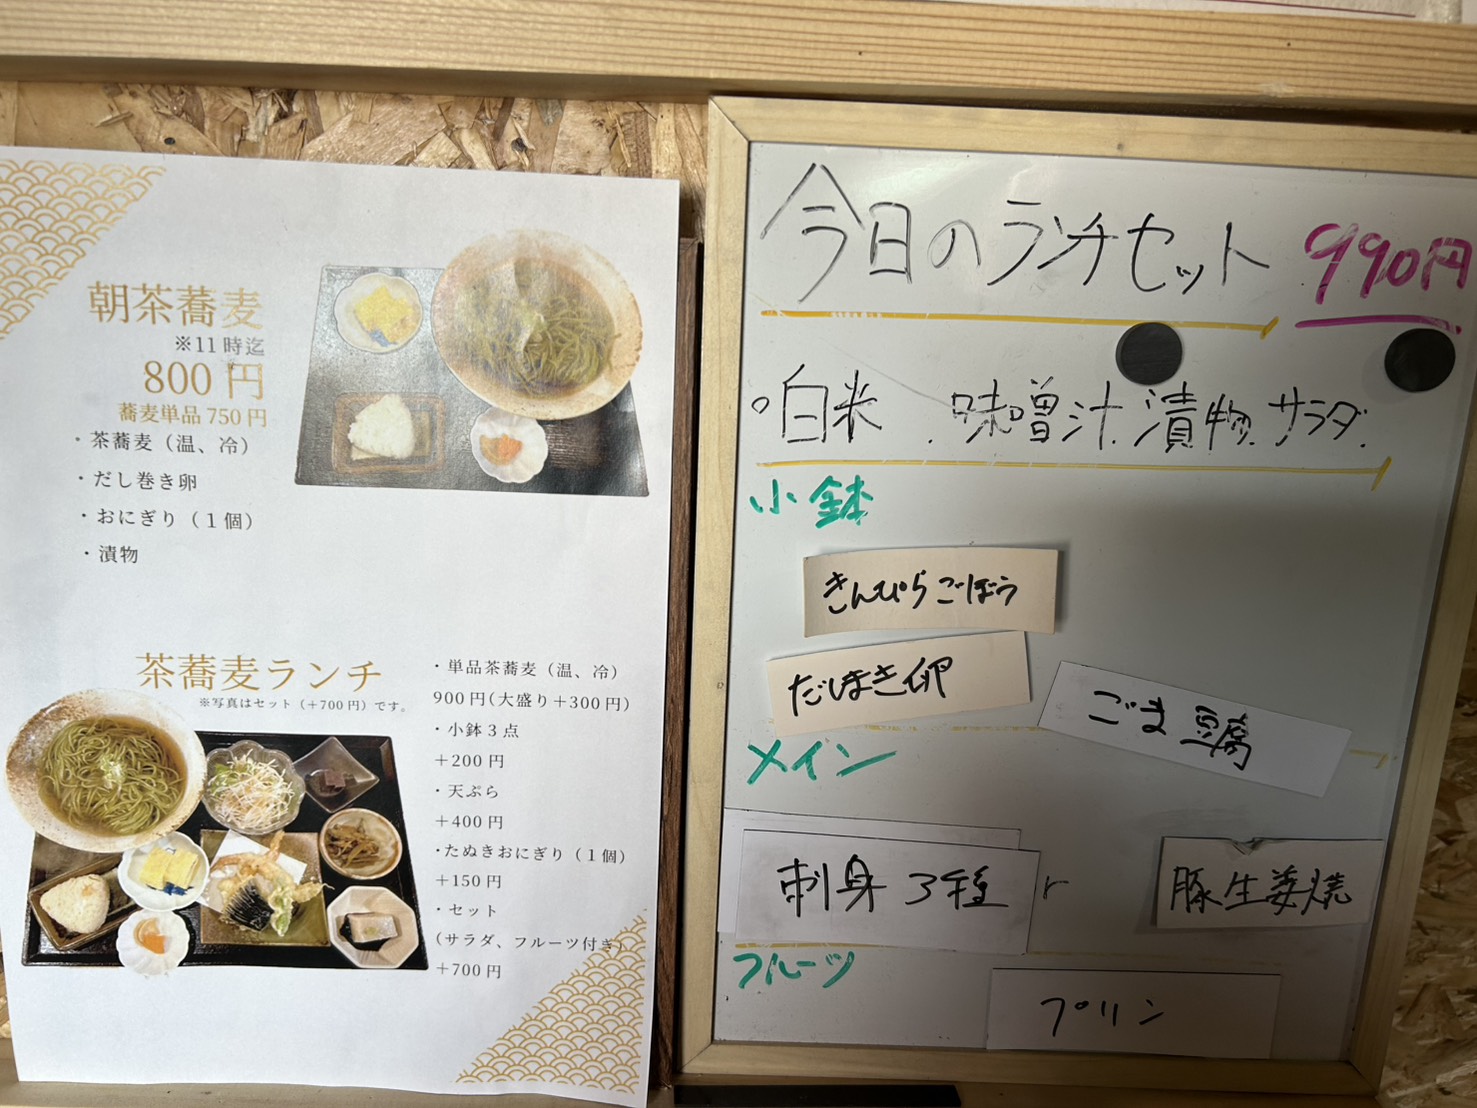 朝茶蕎麦
※11時迄
800円
蕎麦単品750円
・茶蕎麦（温、冷）
・だし巻き卵
・おにぎり（1個）
・漬物
茶蕎麦ランチ
※写真はセット（+700円）です。
・単品茶蕎麦（温、冷）
900円(大盛り+300円)
・小鉢3点
+200円
・天ぷら
+400円
・たぬきおにぎり（1個）
+150円
・セット
（サラダ、フルーツ付き）
+700円
今日のランチセット 990円
○白米 . 味噌汁.漬物.サラダ.
小鉢
きんぴらごぼう
だしまき卵
ごま豆腐
メイン
刺身3種
豚生姜焼
フルーツ
プリン